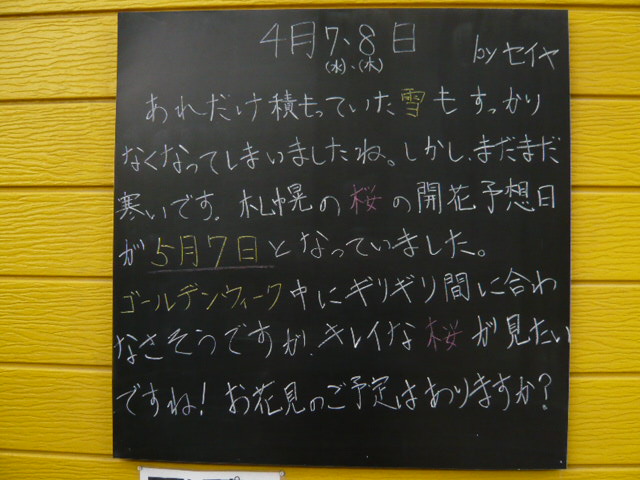 4月7、8日
(水)、(木)
by セイヤ
あれだけ積もっていた雪もすっかり
なくなってしまいましたね。しかし、まだまだ
寒いです。札幌の桜の開花予想日
が5月7日となっていました。
ゴールデンウィーク中にギリギリ間に合わ
なさそうですが、キレイな桜が見たい
ですね！お花見のご予定はありますか？